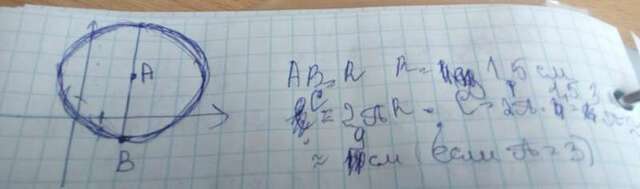 A
B
AB = R R = 1,5 см
C = 2πR C = 2π ·
≈ 9 см (если π = 3)